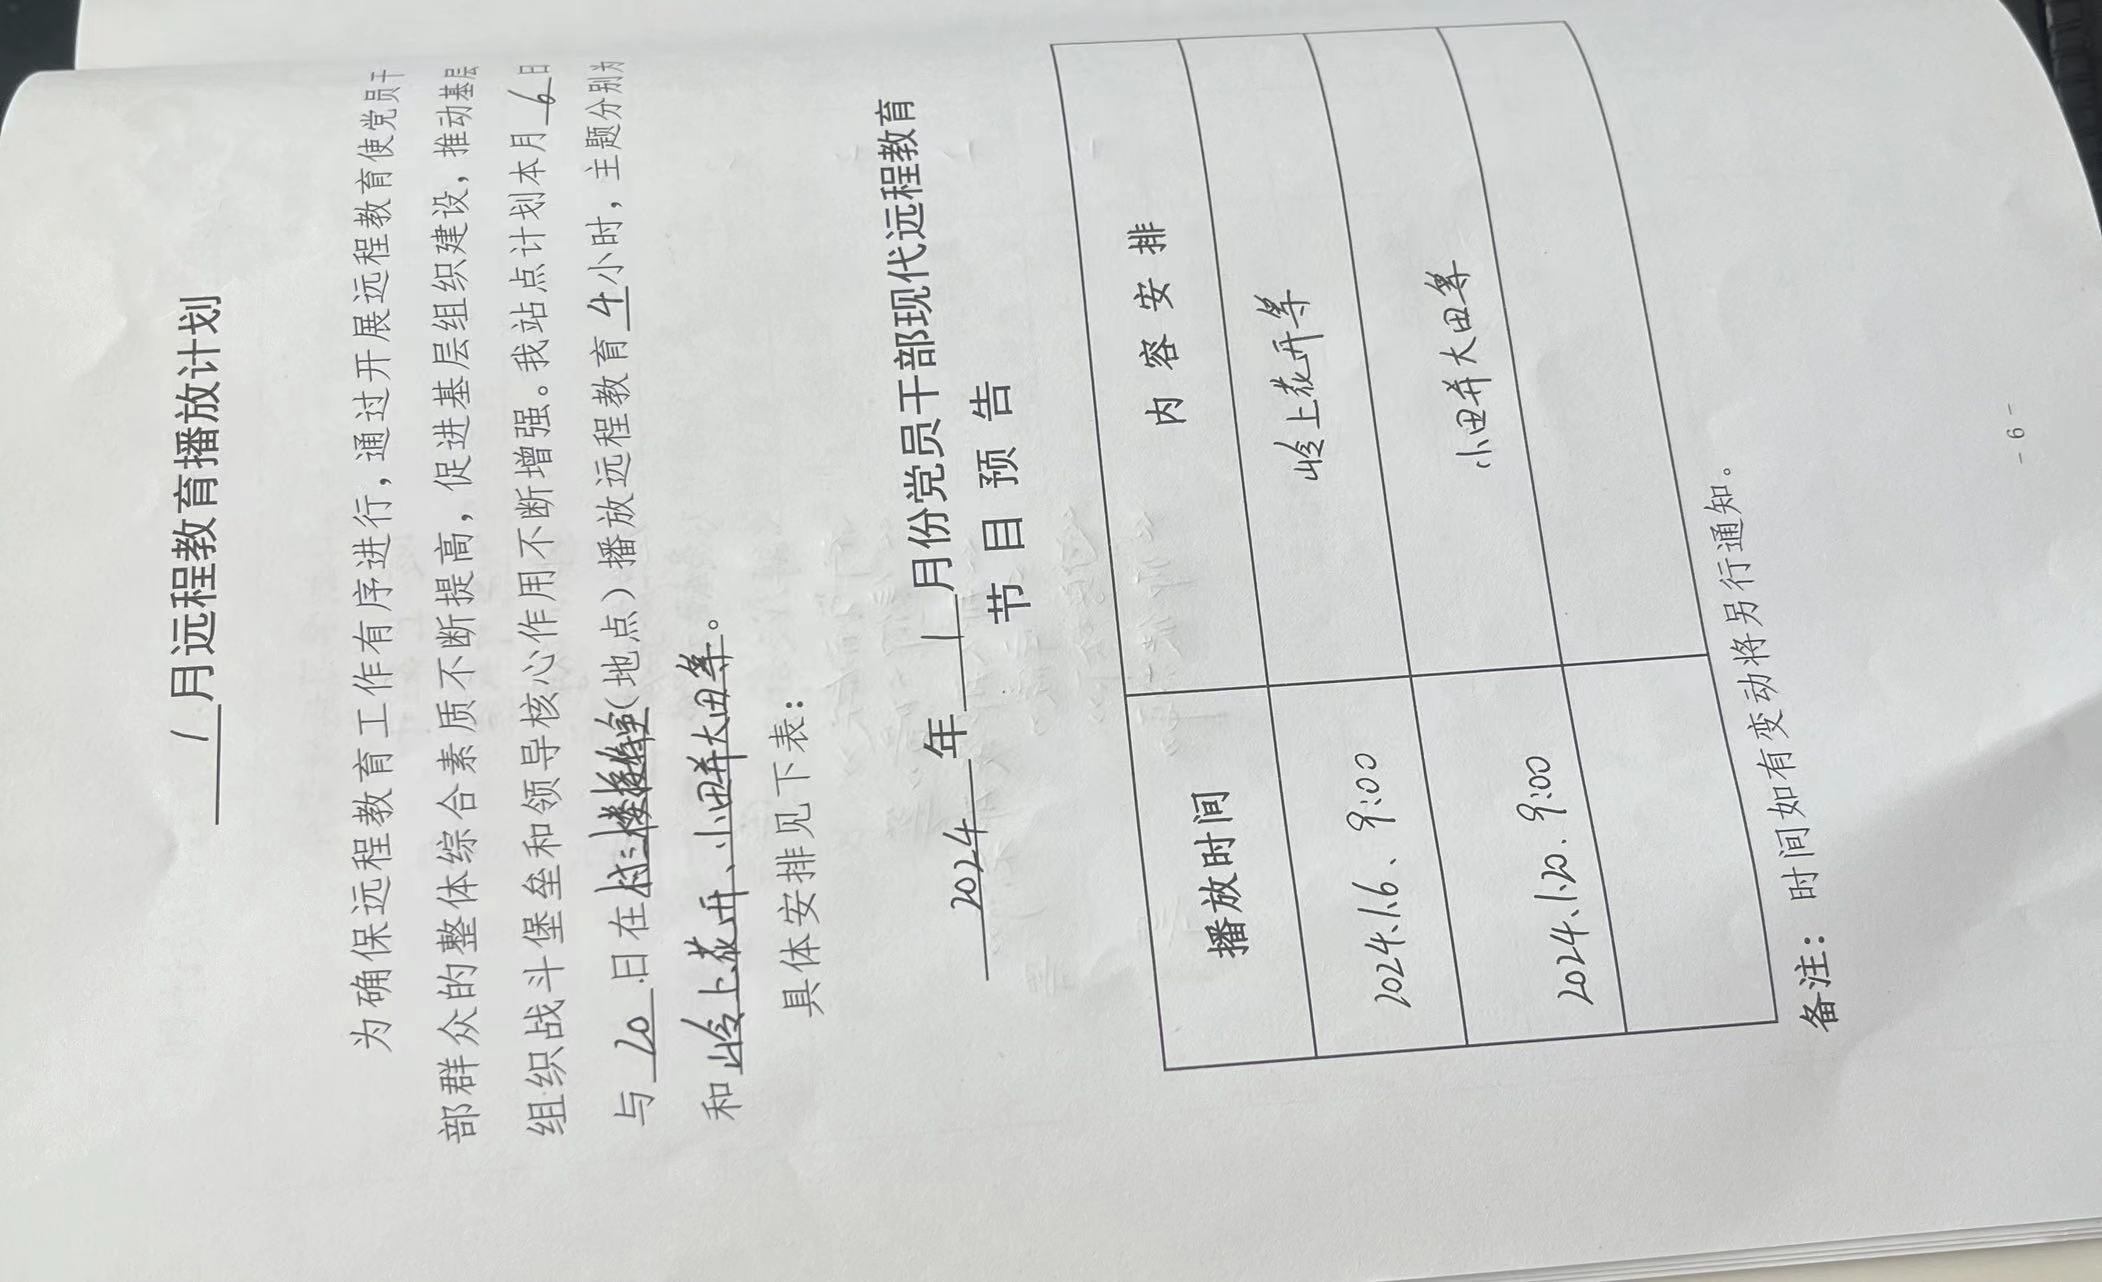 1 月远程教育播放计划
为确保远程教育工作有序进行，通过开展远程教育使党员干
部群众的整体综合素质不断提高，促进基层组织建设，推动基层
组织战斗堡垒和领导核心作用不断增强。我站点计划本月 6 日
与 20 日在村三楼接待室（地点）播放远程教育 4 小时，主题分别为
和岭上花开、小田并大田等。
具体安排见下表：
2024 年 1 月份党员干部现代远程教育
节目预告
播放时间 内容安排
2024.1.6、9:00 岭上花开等
2024.1.20、9:00 小田并大田等
备注：时间如有变动将另行通知。
- 6 -